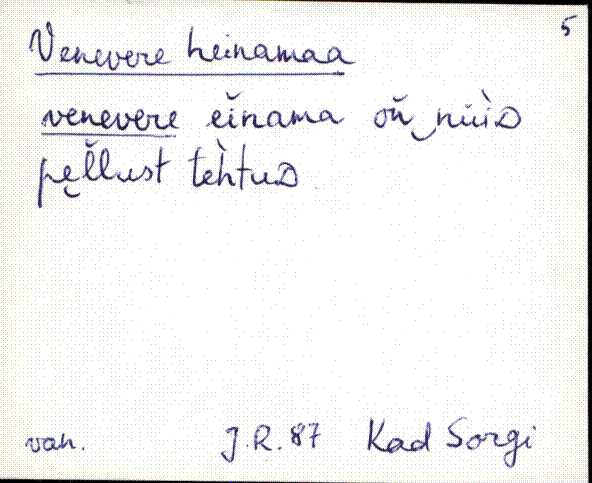 5
Venevere heinamaa
venevere eĭnama oň‿nüìᴅ
pe̮l̆lust teh̀tuᴅ
van. J.R. 87 Kad Sorgi